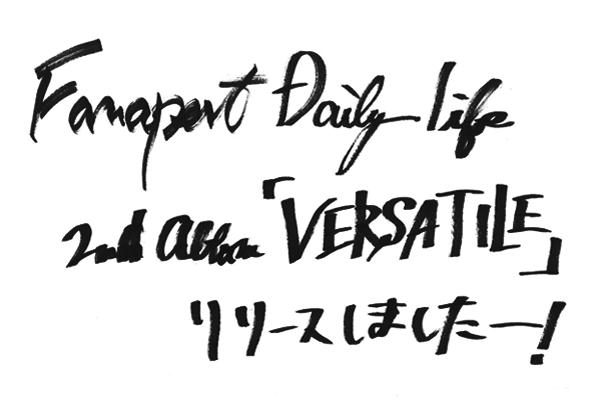 Fanapest Daily life
2nd Album 「VERSATILE」
リリースしましたー!